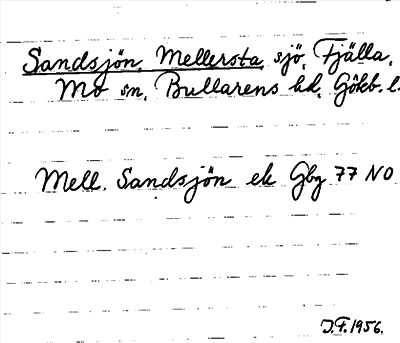 Sandsjön, Mellersta, sjö, Fjälla,
Mo sn, Bullarens hd, Gökb. l.
Mell. Sandsjön ek Gbg 77 NO
J.F. 1956.